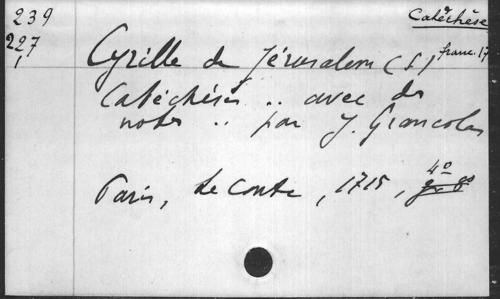 239
Catéchèse
227
1
Cyrille de Jérusalem (S) franc. 17
Catéchèses .. avec des
notes .. par J. Grancolas
Paris, Le Conte, 1715, 4°